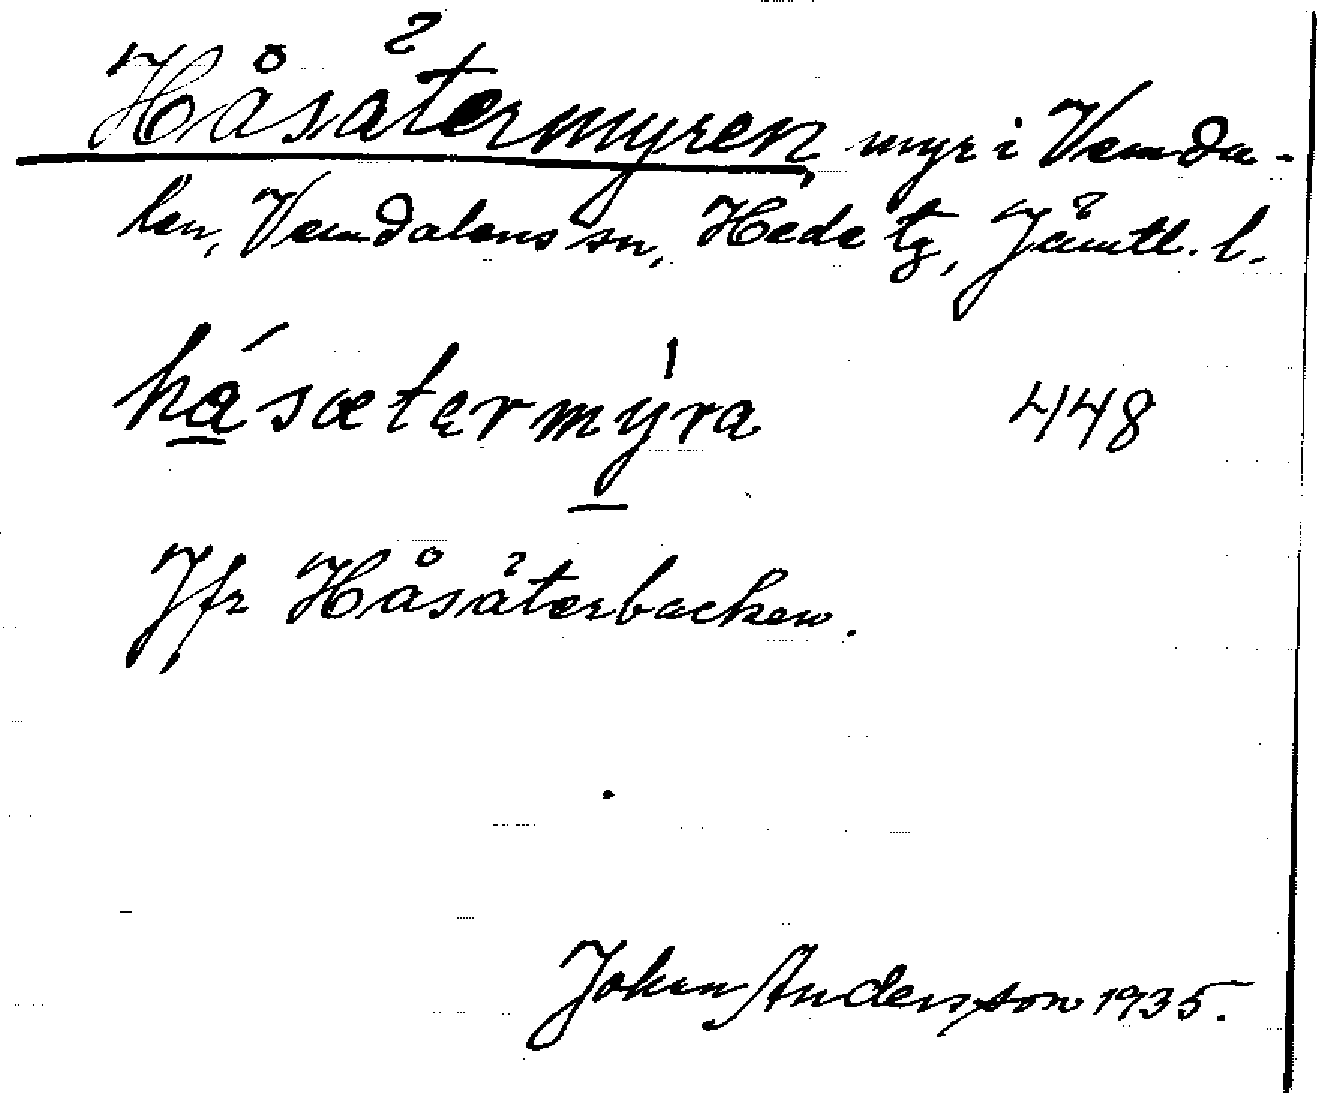 Håsätermyren, myr i Vemda-
len, Vemdalens sn, Hede tg, Jämtl. l.
hásætęrmýra 448
Jfr Håsäterbacken.
Johan Andersson 1935.